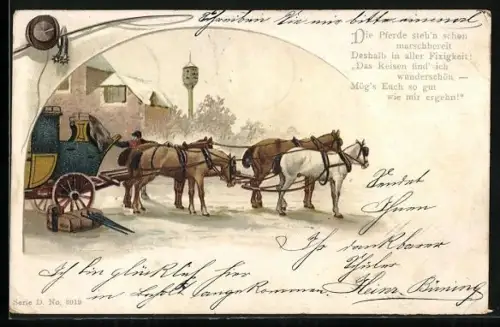 Schreiben Sie mir bitte einmal
Die Pferde steh'n schon
marschbereit
Deshalb in aller Fixigkeit:
„Das Reisen find' ich
wunderschön, —
Mög's Euch so gut
wie mir ergehn!"
Sendet
Ihnen
Ihr dankbarer
Schüler
Heinr. Büning
Ich bin glücklich hier
in angekommen.
Serie D. No. 8019